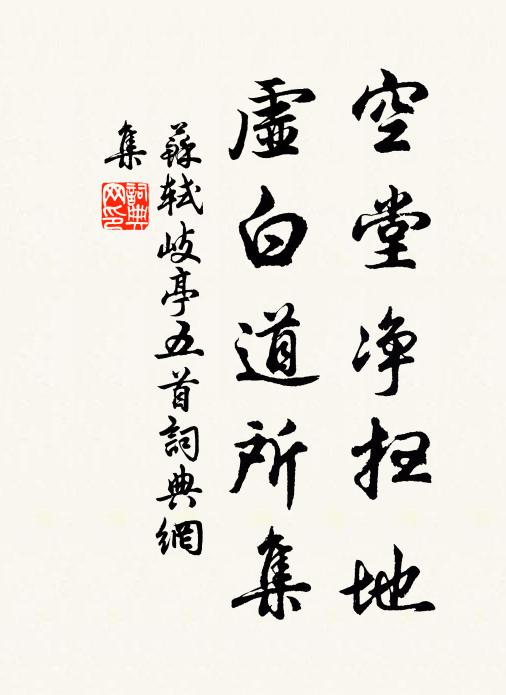 空堂净扫地
虚白道所集
蘇軾岐亭五首詞典網
集
詞典
网印